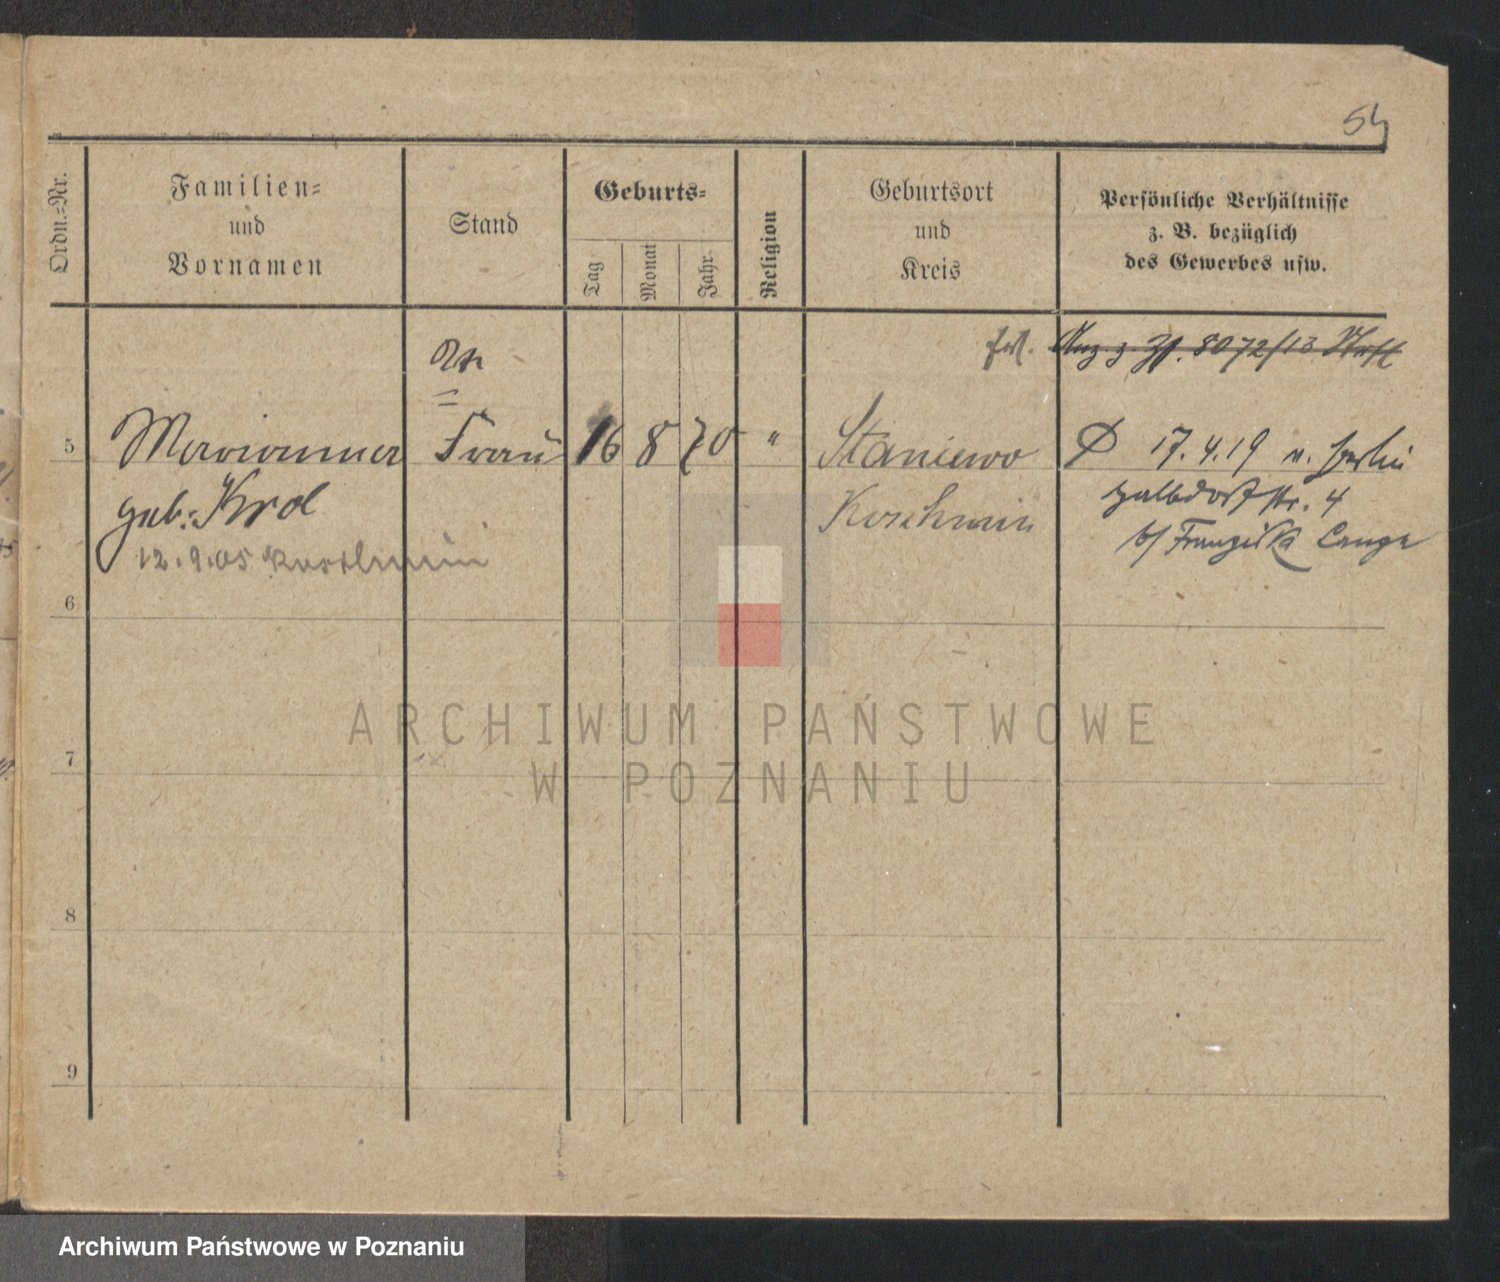 54
Ordn.=Nr.
Familien=
und
Vornamen
Stand
Geburts=
Tag
Monat
Jahr
Religion
Geburtsort
und
Kreis
Persönliche Verhältnisse
z. B. bezüglich
des Gewerbes usw.
8072/13
5
Marianna
Frau
16
8
70
"
Staniewo
17.4.19 n. Berlin
geb. Krol
Koschmin
str. 4
12.9.05 Koschmin
b/ Franziska Lange
6
7
8
9
ARCHIWUM PAŃSTWOWE
W POZNANIU
Archiwum Państwowe w Poznaniu